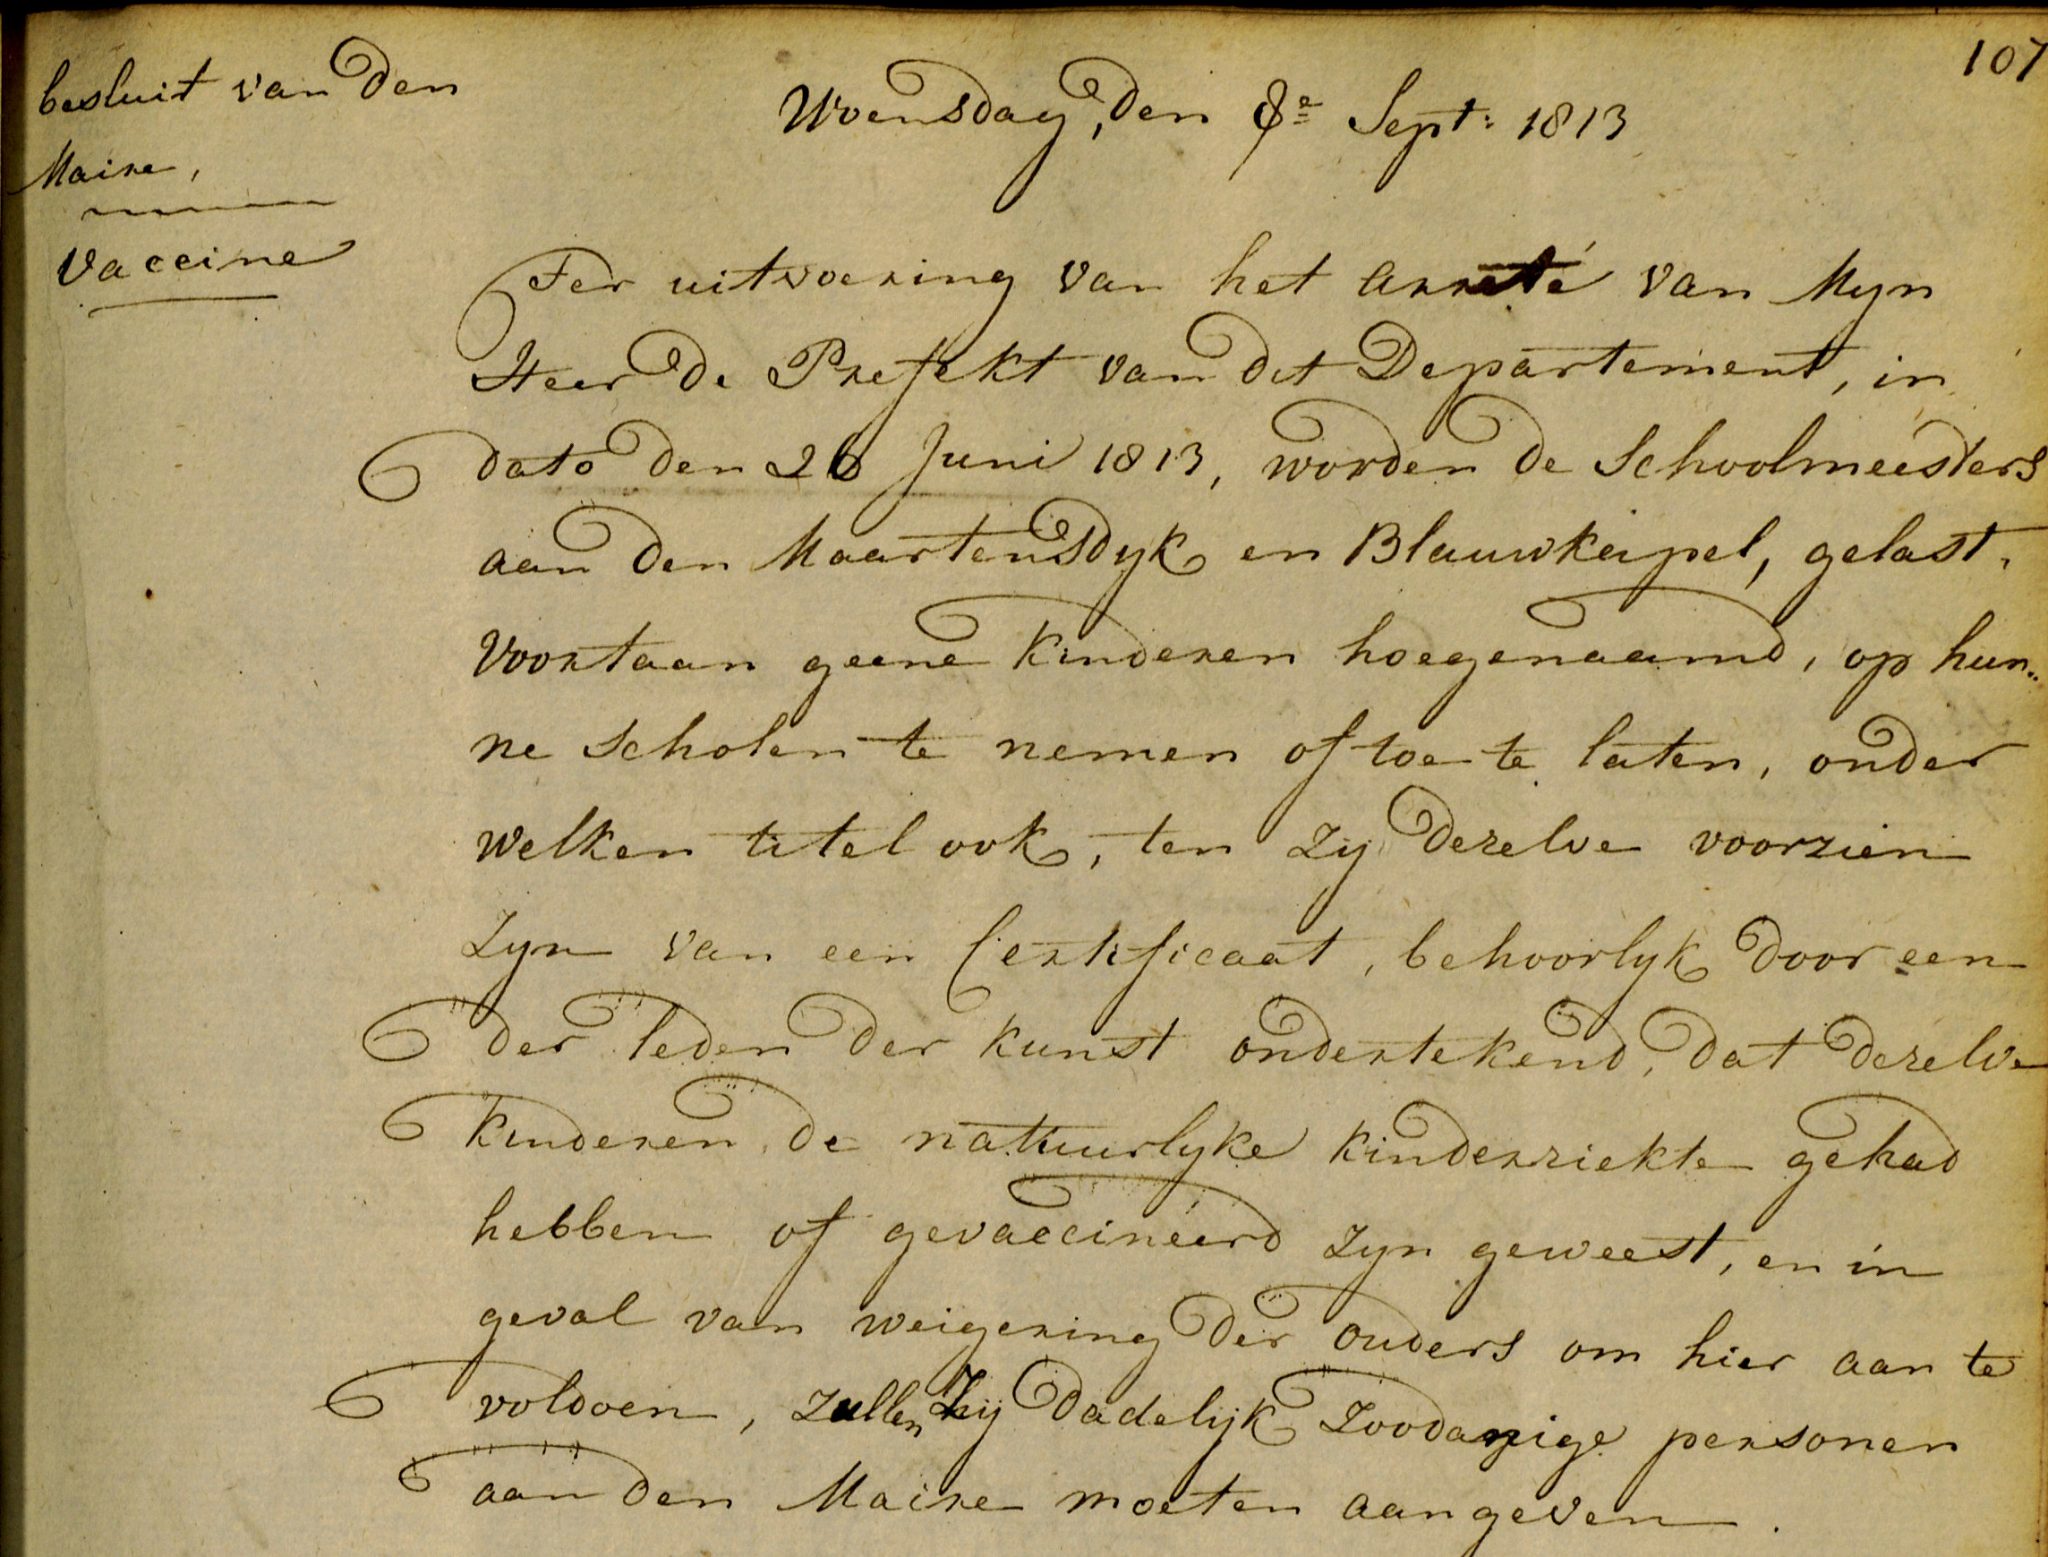 107
besluit van den
Maire,
Vaccine
Woensdag, den 8e Sept: 1813
Ter uitvoering van het Arreté van Myn
Heer de Prefekt van dit Departement, in
dato den 26 Juni 1813, worden de Schoolmeesters
aan den Maartensdyk en Blauwkapel, gelast,
voortaan geene kinderen hoegenaamd, op hun„
ne scholen te nemen of toe te laten, onder
welken titel ook, ten zy dezelve voorzien
zyn van een Certificaat, behoorlyk door een
der leden der kunst ondertekend, dat dezelve
kinderen de natuurlyke kinderziekte gehad
hebben of gevaccineerd zyn geweest, en in
geval van weigering der ouders om hier aan te
voldoen, zullen zij dadelijk zoodanige personen
aan den Maire moeten aangeven.